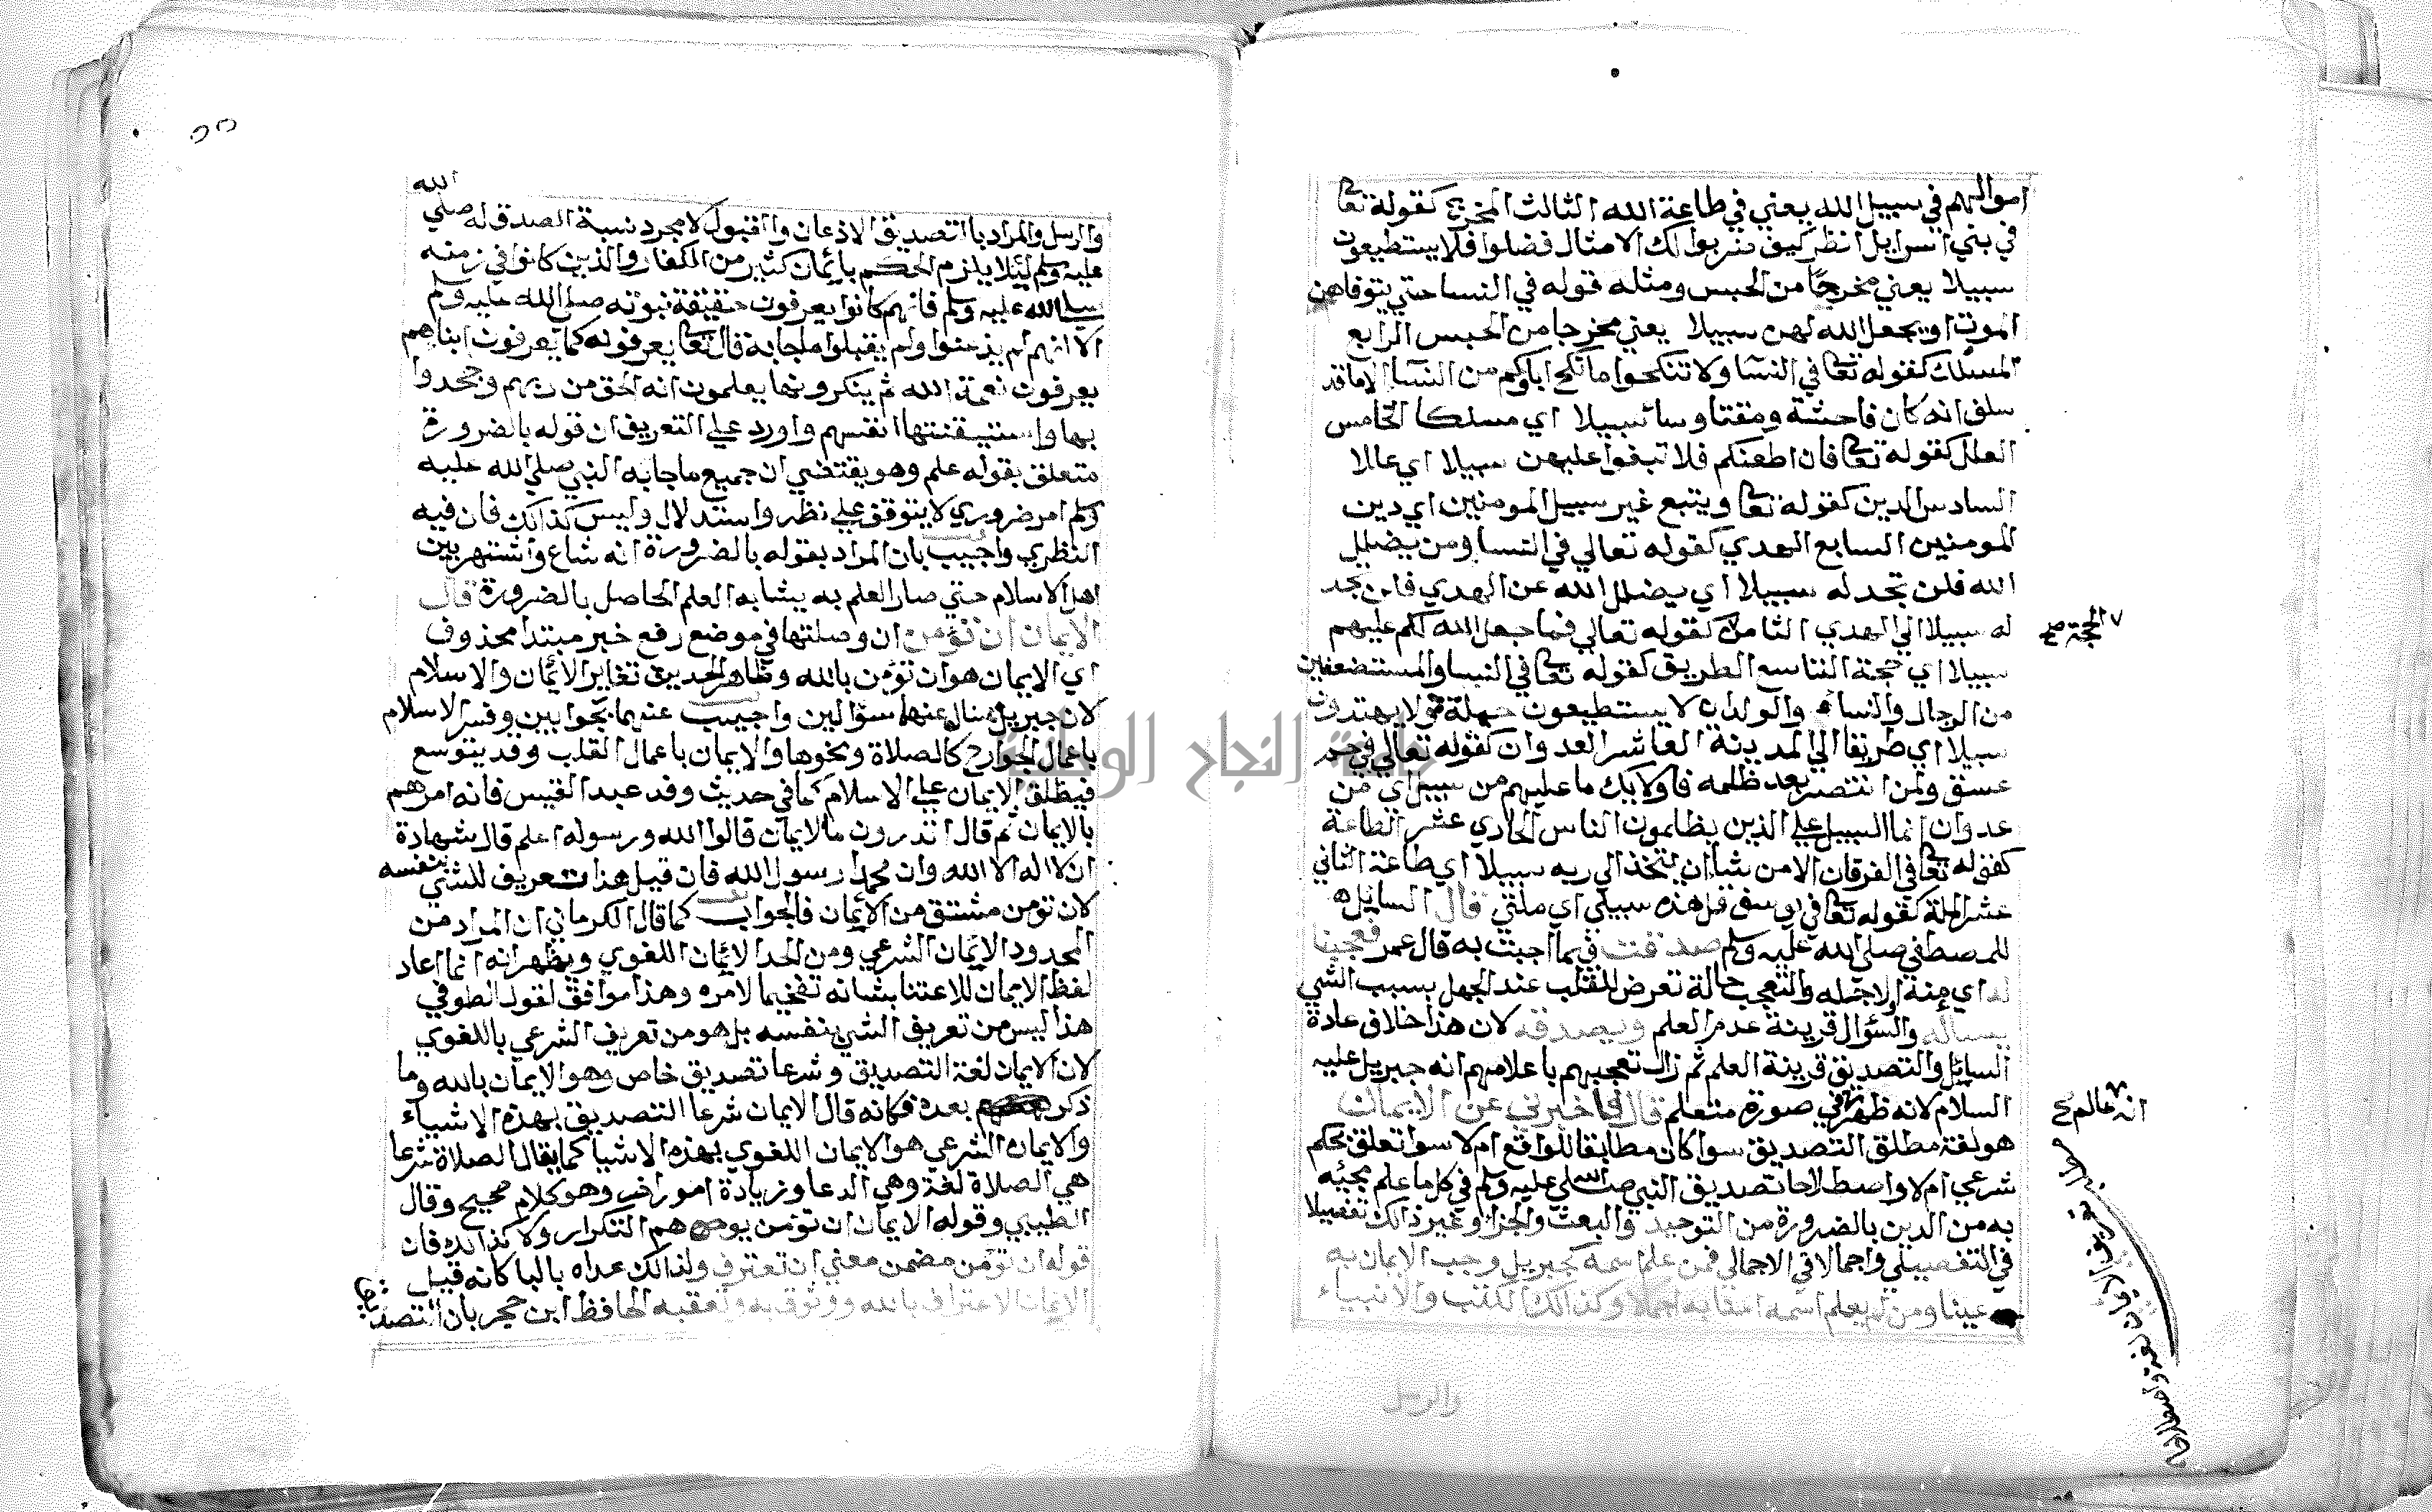 اموالهم في سبيل الله يعني في طاعة الله الثالث المخرج كقوله تعا
في بني اسرايل انظر كيف ضربوا لك الامثال فضلوا فلا يستطيعون
سبيلا يعني مخرجا من الحبس ومثله قوله في النسا حتي يتوفاهن
الموت او يجعل الله لهن سبيلا يعني مخرجا من الحبس الرابع
المسلك كقوله تعا في النسا ولا تنكحوا ما نكح اباوكم من النسا الا ما قد
سلف انه كان فاحشة ومقتا وسا سبيلا اي مسلكا الخامس
العلل كقوله تعا فان اطعنكم فلا تبغوا عليهن سبيلا اي عللا
السادس الدين كقوله تعا ويتبع غير سبيل المومنين اي دين
المومنين السابع الهدي كقوله تعالي في النسا ومن يضلل
الله فلن تجد له سبيلا اي يضلل الله عن الهدي فلن تجد
له سبيلا الي الهدي الثامن كقوله تعالي فما جعل الله لكم عليهم
الحجة صح
سبيلا اي حجة التاسع الطريق كقوله تعا في النسا والمستضعفين
من الرجال والنساء والولدان لا يستطيعون حيلة ولا يهتدون
سبيلا اي طريقا الي المدينة العاشر العدوان كقوله تعالي في حم
عسق ولمن انتصر بعد ظلمه فاولايك ما عليهم من سبيل اي من
عدوان انما السبيل علي الذين يظلمون الناس الحادي عشر الطاعة
كقوله تعا في الفرقان الا من شا ان يتخذ الي ربه سبيلا اي طاعة الثاني
عشر الملة كقوله تعا في يوسف قل هذه سبيلي اي ملتي قال السايل
للمصطفي صلي الله عليه وسلم صدقت فيما اجبت به قال عمر فعجبنا
له اي منه او لاجله والتعجب حالة تعرض للقلب عند الجهل بسبب الشي
يساله والسؤال قرينة عدم العلم ويصدقه لان هذا خلاف عادة
السائل والتصديق قرينة العلم ثم زال تعجبهم باعلامهم انه جبريل عليه
السلام لانه ظهر في صورة متعلم قال فاخبرني عن الايمان
انه عالم صح
هو لغة مطلق التصديق سوا كان مطابقا للواقع ام لا سوا تعلق بحكم
شرعي ام لا واصطلاحا تصديق النبي صلي الله عليه وسلم في كل ما علم مجيئه
به من الدين بالضرورة من التوحيد والبعث والجزا وغير ذالك تفصيلا
في التفصيلي واجمالا في الاجمالي فمن علم اسمه كجبريل وجب الايمان به
عينا ومن لم يعلم اسمه امنا به اجمالا وكذالك الكتب والانبياء
تعريف الايمان لغة واصطلاحا
والرسل
والرسل والمراد بالتصديق الاذعان والقبول لا مجرد نسبة الصدق له صلي الله
عليه وسلم ليلا يلزم الحكم بايمان كثير من الكفار والذين كانوا في زمنه
صلي الله عليه وسلم فانهم كانوا يعرفون حقيقة نبوته صلي الله عليه وسلم
الا انهم لم يذعنوا ولم يقبلوا ما جا به قال تعا يعرفونه كما يعرفون ابناهم
يعرفون نعمة الله ثم ينكرونها يعلمون انه الحق من ربهم وجحدوا
بها واستيقنتها انفسهم واورد علي التعريف ان قوله بالضرورة
متعلق بقوله علم وهو يقتضي ان جميع ما جا به النبي صلي الله عليه
وسلم امر ضروري لا يتوقف علي نظر واستدلال وليس كذالك فان فيه
النظري واجيب بان المراد بقوله بالضرورة انه شاع واشتهر بين
اهل الاسلام حتي صار العلم به يشابه العلم الحاصل بالضرورة قال
الايمان ان تؤمن ان وصلتها في موضع رفع خبر مبتدا محذوف
اي الايمان هو ان تؤمن بالله وظاهر الحديث تغاير الايمان والاسلام
لان جبريل سال عنهما سؤالين واجيب عنهما بجوابين وفسر الاسلام
باعمال الجوارح كالصلاة ونحوها والايمان باعمال القلب وقد يتوسع
فيطلق الايمان علي الاسلام كما في حديث وفد عبد القيس فانه امرهم
بالايمان ثم قال اتدرون ما الايمان قالوا الله ورسوله اعلم قال شهادة
ان لا اله الا الله وان محمدا رسول الله فان قيل هذا تعريف للشي بنفسه
لان تومن مشتق من الايمان فالجواب كما قال الكرماني ان المراد من
المحدود الايمان الشرعي ومن الحد الايمان اللغوي ويظهر انه انما اعاد
لفظ الايمان للاعتنا بشانه تفخيما لامره وهذا موافق لقول الطوفي
هذا ليس من تعريف الشي بنفسه بل هو من تعريف الشرعي باللغوي
لان الايمان لغة التصديق وشرعا تصديق خاص وهو الايمان بالله وما
ذكر بعده فكانه قال الايمان شرعا التصديق بهذه الاشياء
والايمان الشرعي هو الايمان اللغوي بهذه الاشيا كما يقال الصلاة شرعا
هي الصلاة لغة وهي الدعا وزيادة امور اخر وهو كلام صحيح وقال
الطيبي وقوله الايمان ان تؤمن يوهم التكرار ولا كذالك فان
قوله ان تؤمن مضمن معني ان تعترف ولذالك عداه بالبا كانه قيل
الايمان الاعتراف بالله ووثوق به وتعقبه الحافظ ابن حجر بان التصديق
جامعة النجاح الوطنية